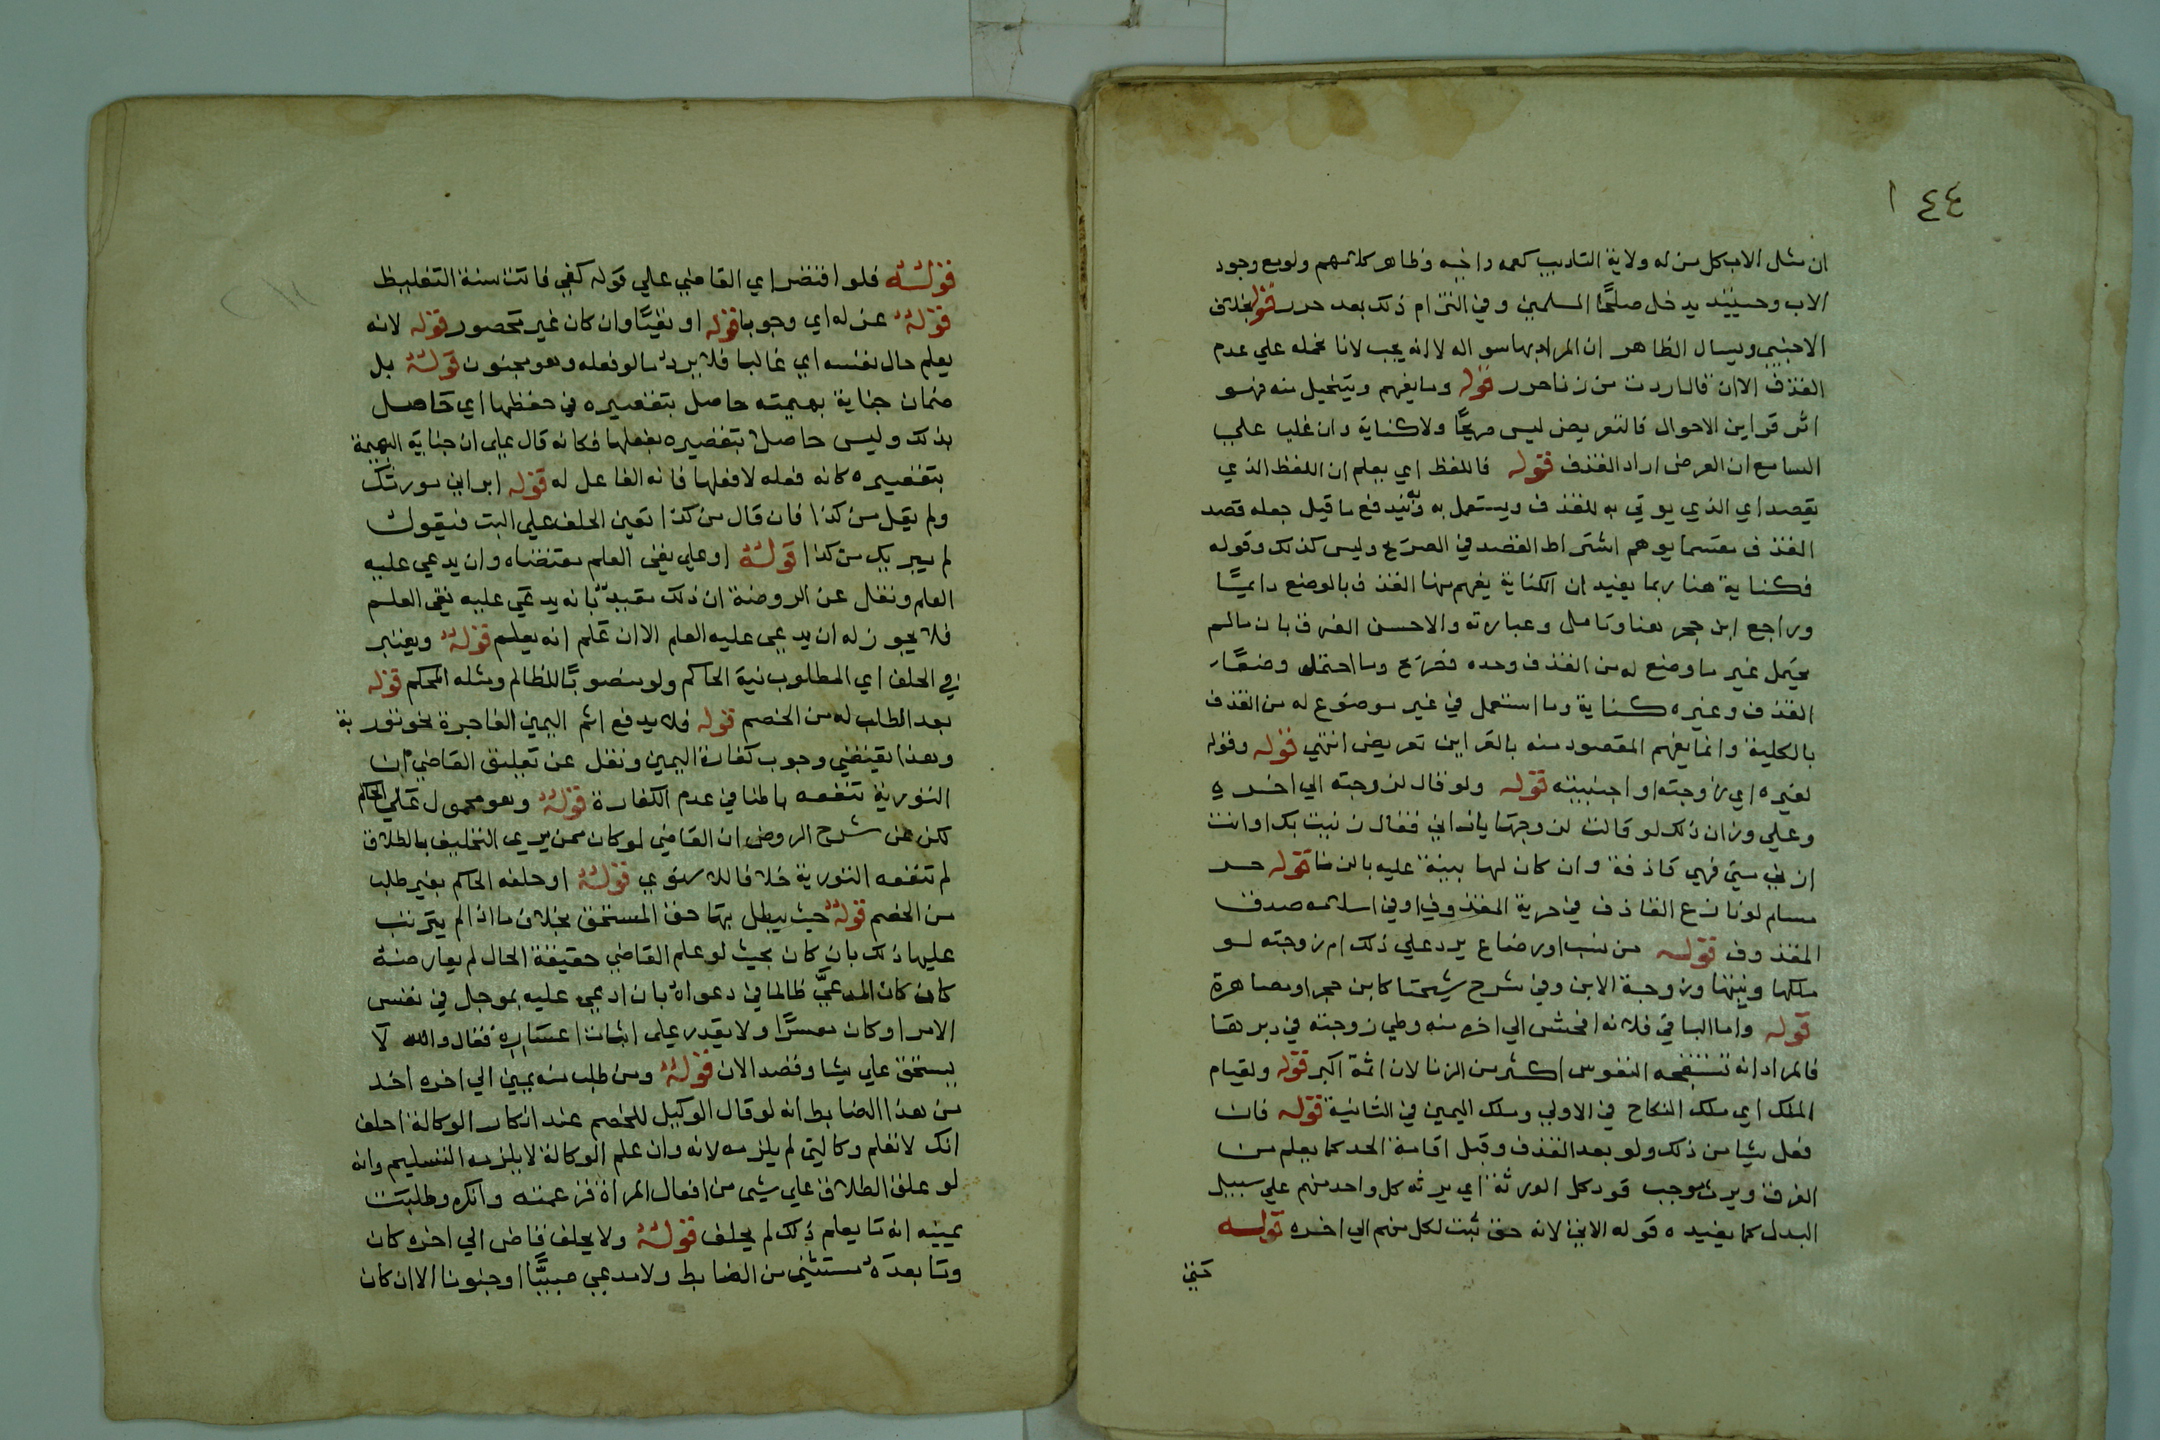 ١٤٤
ان مثل الاب كل من له ولاية التاديب كعمه واخيه وظاهر كلامهم ولو مع وجود
الاب وحينئذ يدخل صلحا المسلمين وفي التزام ذلك بعد حرر قوله بخلاف
الاجنبي ويسال الظاهر ان المراد بها سواله لا انه يجب لانا نحمله علي عدم
القذف الا ان قال اردت من زنا حرر قوله وما يفهم ويتخيل منه فهو
اثر قراين الاحوال فالتعريض ليس صريحا ولا كناية وان غلب علي
السامع ان المعرض اراد القذف قوله فاللفظ اي يعلم ان اللفظ الذي
يقصد اي الذي يوتي به للقذف ويستعمل به فيندفع ما قيل جعله قصد
القذف مقسما يوهم اشتراط القصد في الصريح وليس كذلك وقوله
فكناية هنا ربما يفيد ان الكناية يفهم منها القذف بالوضع دايما
وراجع ابن حجر هنا وتامل وعبارته والاحسن الفرق بان مالم
يحتمل غير ما وضع له من القذف وحده فصريح وما احتمله وضعا
القذف وغيره كناية وما استعمل في غير موضوع له من القذف
بالكلية وانما يفهم المقصود منه بالقراين تعريض انتهي قوله وقوله
لغيره اي زوجته او اجنبيته قوله ولو قال لزوجته الي اخره
وعلي وزان ذلك لو قالت لزوجها يا زاني فقال زنيت بك او انت
ازني مني فهي قاذفة وان كان لها بينة عليه بالزنا قوله حر
مسلم لو نازع القاذف في حرية المقذوف او في اسلامه صدق
المقذوف قوله من نسب او رضاع يرد علي ذلك ام زوجته لو
ملكها وبنتها وزوجة الابن وفي شرح شيخنا كابن حجر او مصاهرة
قوله واما الباقي فلانه افحش الي اخره منه وطي زوجته في دبرها
فالمراد انه تستقبحه النفوس اكثر من الزنا لان اثمه اكبر قوله ولقيام
الملك اي ملك النكاح في الاولي وملك اليمين في الثانية قوله فان
فعل شيا من ذلك ولو بعد القذف وقبل اقامة الحد كما يعلم من
الفرق ويرث موجب قود كل الورثة اي يرثه كل واحد منهم علي سبيل
البدل كما يفيده قوله الاتي لانه حق ثبت لكل منهم الي اخره قوله
قوله فلو اقتصر اي القاضي علي قوله كفي فاتت سنة التغليظ
قوله عزله اي وجوبا قوله او نفيا وان كان غير محصور قوله لانه
يعلم حال نفسه اي غالبا فلا يرد ما لو فعله وهو مجنون قوله بل
ضمان جناية بهيمته حاصل بتقصيره في حفظها اي حاصل
بذلك وليس حاصل بتقصيره بفعلها فكانه قال بلي ان جناية البهيمة
بتقصيره كانه فعله لا فعلها فانه الفاعل له قوله ابراني مورثك
ولم يقل من كذا فان قال من كذا تعين الحلف علي البت فيقول
لم يبريك من كذا قوله او علي نفي العلم مقتضاه وان يدعي عليه
العلم ونقل عن الروضة ان ذلك مقيد بانه يدعي عليه نفي العلم
فلا يجوز له ان يدعي عليه العلم الا ان علم انه يعلم قوله ويعتبر
في الحلف اي المطلوب نية الحاكم ولو منصوبا للظالم ومثله المحكم قوله
بعد الطلب له من الخصم قوله فلا يدفع اثم اليمين الفاجرة نحو تورية
وهذا يقتضي وجوب كفارة اليمين ونقل عن تعليق القاضي ان
التورية تنفعه باطنا في عدم الكفارة قوله وهو محمول علي الحاكم
لكن عن شرح الروض ان القاضي لو كان ممن يري التحليف بالطلاق
لم تنفعه التورية خلافا للاسنوي قوله او حلفه الحاكم بغير طلب
من الخصم قوله حيث يبطل بها حق المستحق بخلاف ما اذا لم يترتب
عليها ذلك بان كان بحيث لو علم القاضي حقيقة الحال لم يعارضه
كان كان المدعي ظالما في دعواه بان ادعي عليه بموجل في نفس
الامر او كان معسرا ولا يقدر علي اثبات اعساره فقال والله لا
يستحق علي شيا وقصد الان قوله ومن طلب منه يمين الي اخره اخذ
من هذا الضابط انه لو قال الوكيل للخصم عند انكار الوكالة احلف
انك لا تعلم وكالتي لم يلزمه لانه وان علم الوكالة لا يلزمه التسليم وانه
لو علق الطلاق علي شي من افعال المراة فزعمته وانكره وطلبت
يمينه انه ما يعلم ذلك لم يحلف قوله ولا يحلف قاض الي اخره كان
وما بعده مستثني من الضابط ولا مدعي صبيا او جنونا الا ان كان